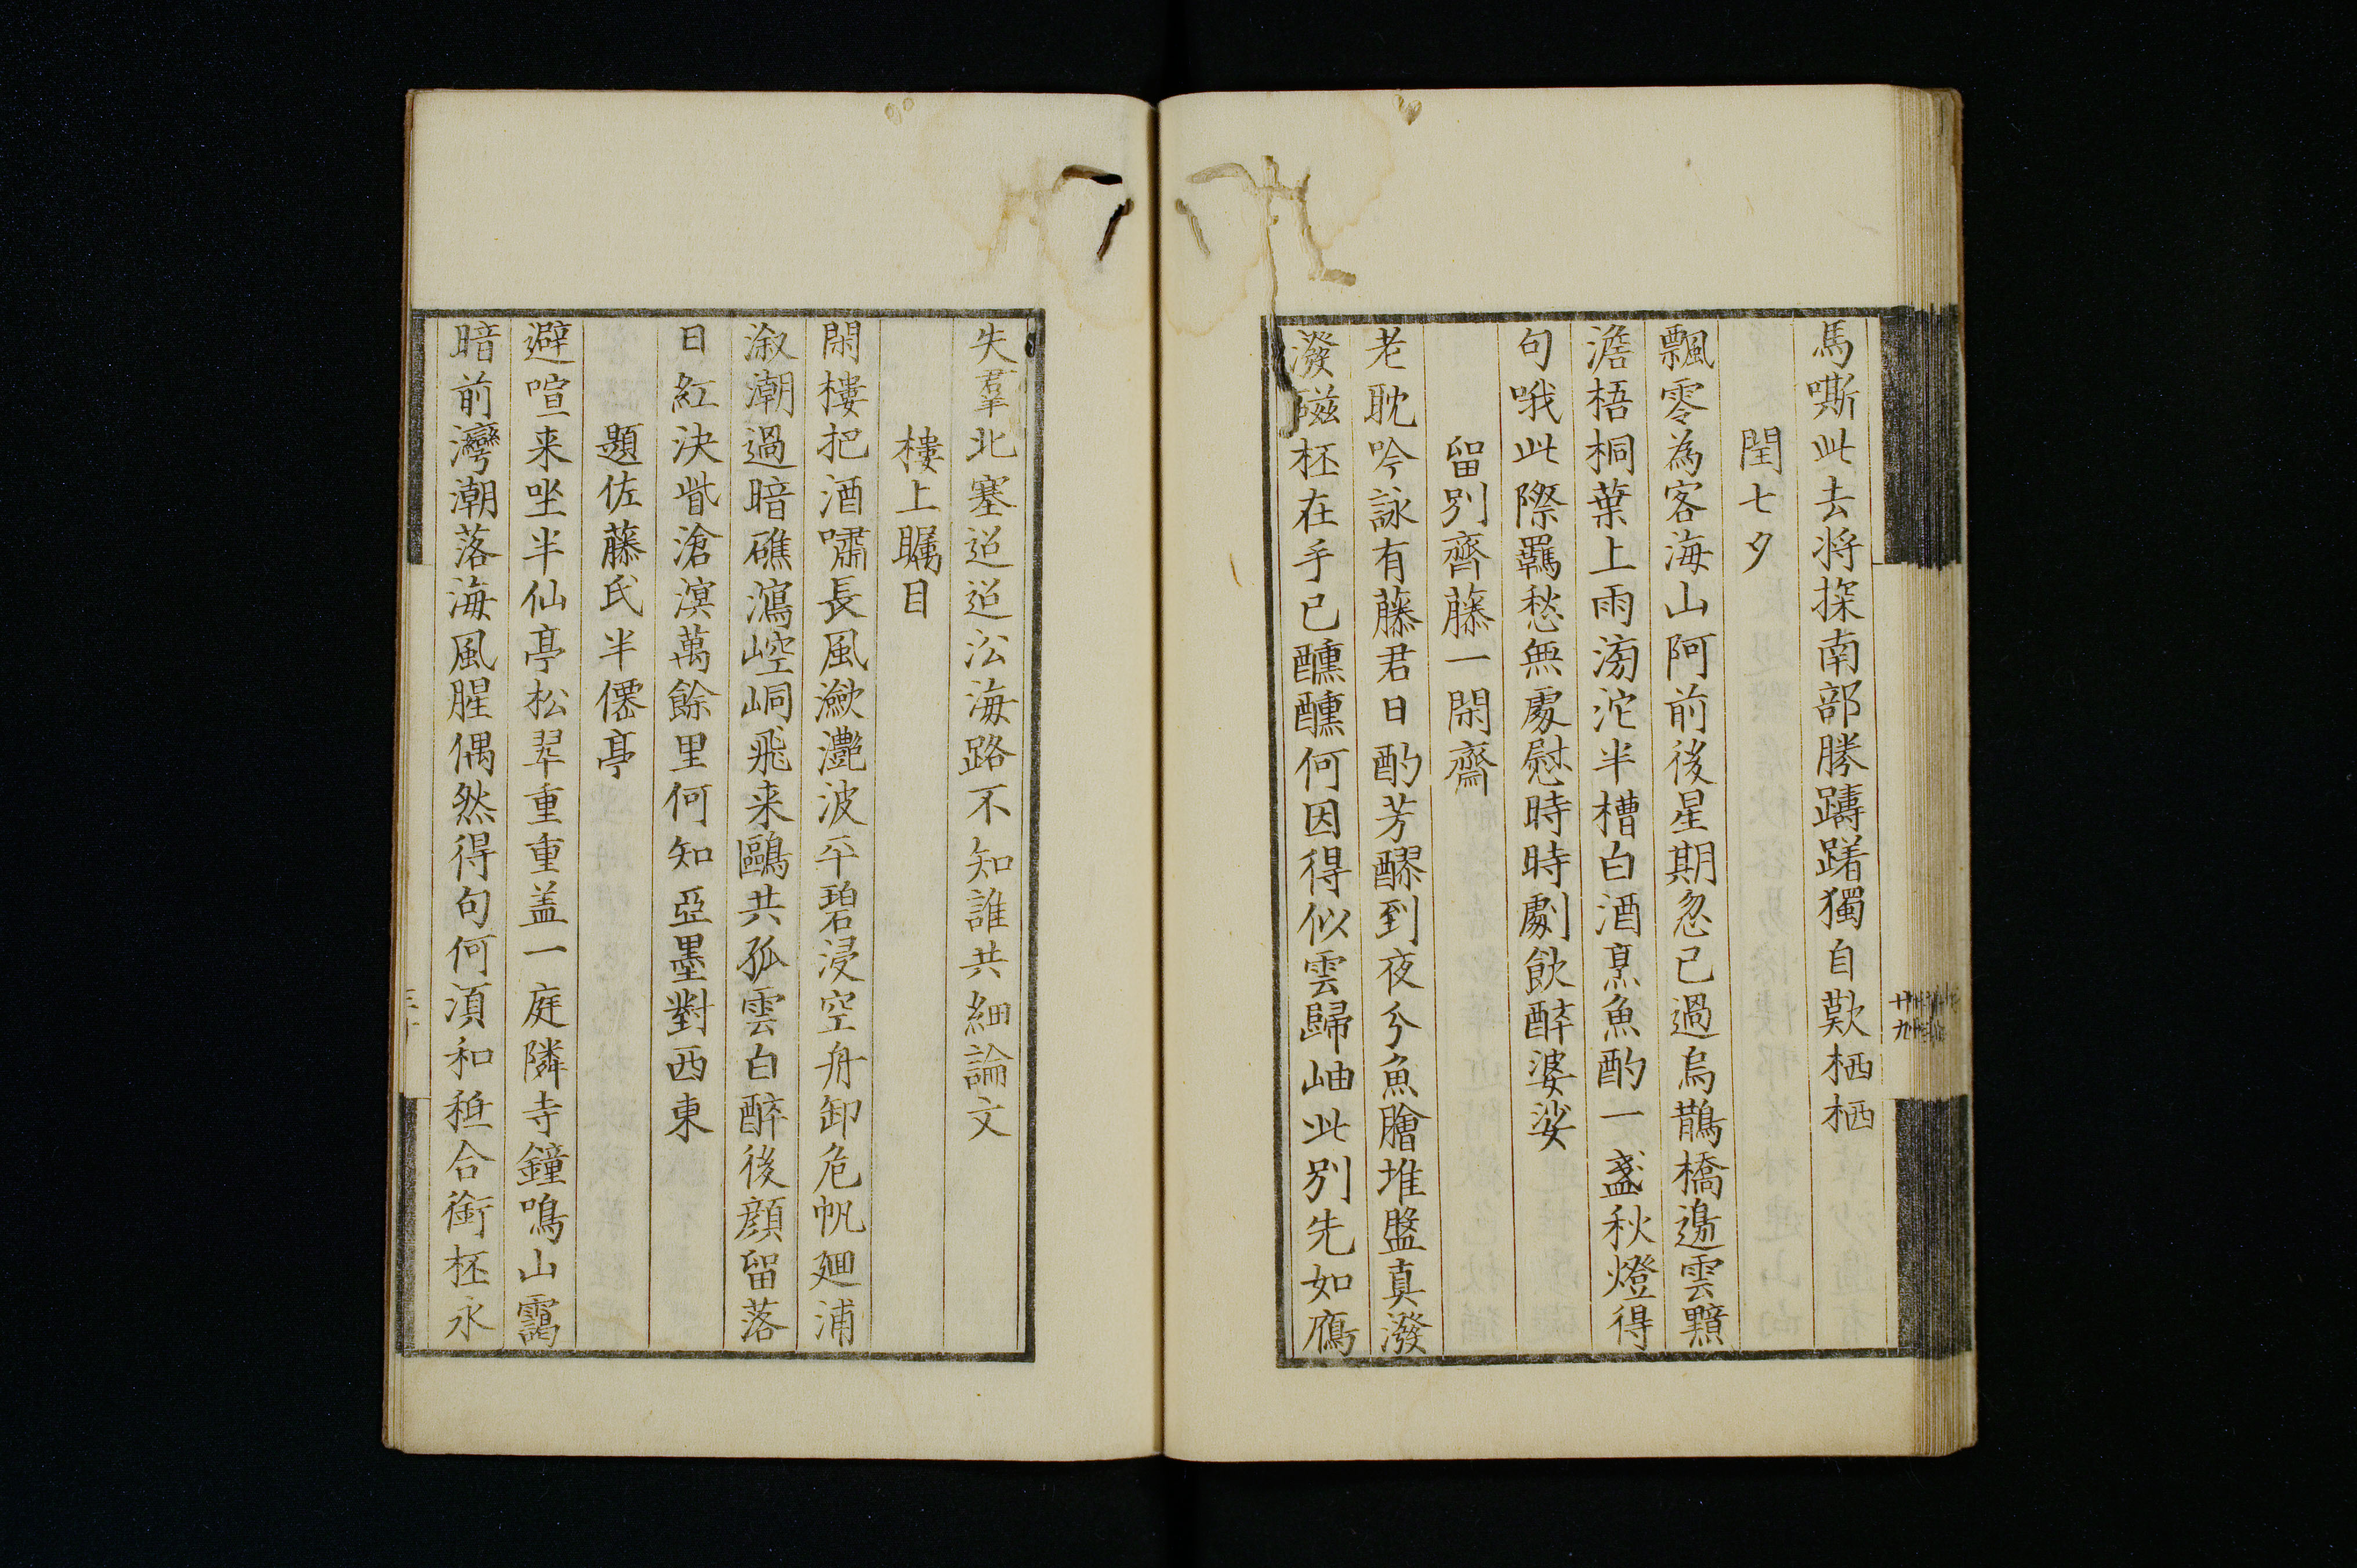 馬嘶此去将探南部勝躊躇獨自歎栖栖
閏七夕
飄零為客海山阿前後星期忽已過烏鵲橋邉雲黯
澹梧桐葉上雨滂沱半槽白酒烹魚酌一盞秋燈得
句哦此際羈愁無處慰時時劇飲醉婆娑
留別齊藤一閑齋
老耽吟詠有藤君日酌芳醪到夜分魚膾堆盤真潑
潑磁杯在手已醺醺何因得似雲歸岫此別先如鴈
失羣北塞迢迢㳂海路不知誰共細論文
樓上矚目
閑樓把酒嘯長風瀲灧波平碧浸空舟卸危帆廻浦
溆潮過暗礁瀉崆峒飛来鷗共孤雲白醉後顔留落
日紅決眥滄溟萬餘里何知亞墨對西東
題佐藤氏半僊亭
避喧来坐半仙亭松翠重重盖一庭隣寺鐘鳴山靄
暗前灣潮落海風腥偶然得句何湏和秪合銜杯永
廿九